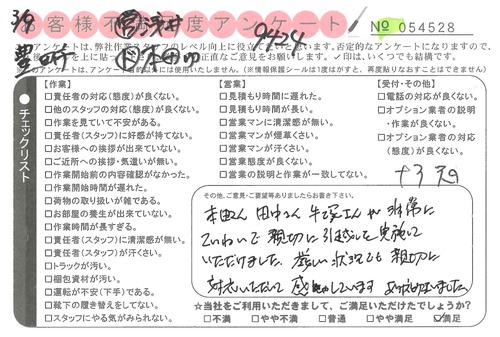 3/9
お客様不満足度アンケート
№ 054528
豊呼
本田
9424
このアンケートは、弊社作業スタッフのレベル向上に役立てたいと思います。否定的なアンケートになりますので、
正直なご意見をお願いします。✓印は、いくつでも結構です。
チェックリスト
【作業】
□責任者の対応(態度)が良くない。
□他のスタッフの対応(態度)が良くない。
□作業を見ていて不安がある。
□責任者(スタッフ)に好感が持てない。
□お客様への挨拶が出来ていない。
□ご近所への挨拶・気遣いが無い。
□作業開始前の内容確認がなかった。
□作業開始時間が遅れた。
□荷物の取り扱いが雑である。
□お部屋の養生が出来ていない。
□作業時間が長すぎる。
□責任者(スタッフ)に清潔感が無い。
□責任者(スタッフ)が汗くさい。
□トラックが汚い。
□梱包資材が汚い。
□運転が不安(下手)である。
□靴下の履き替えをしてない。
□スタッフにやる気がみられない。
【営業】
□見積もり時間に遅れた。
□見積もり時間が長い。
□営業マンに清潔感が無い。
□営業マンが煙草くさい。
□営業マンが汗くさい。
□営業態度が良くない。
□営業の説明と作業が一致してない。
【受付・その他】
□電話の対応が良くない。
□オプション業者の説明
・作業が良くない。
□オプション業者の対応
(態度)が良くない。
その他、ご意見・ご要望等ありましたらお書き下さい。
本田さん 田中さん 牛塚さんが 非常に
ていねいで 親切に 引越しを実施して
いただけました。厳しい状況でも 親切に
対応いただいて 感謝しています ありがとうございました
☆当社をご利用いただきまして、ご満足いただけたでしょうか?
□不満 □やや不満 □普通 □やや満足 ☑満足